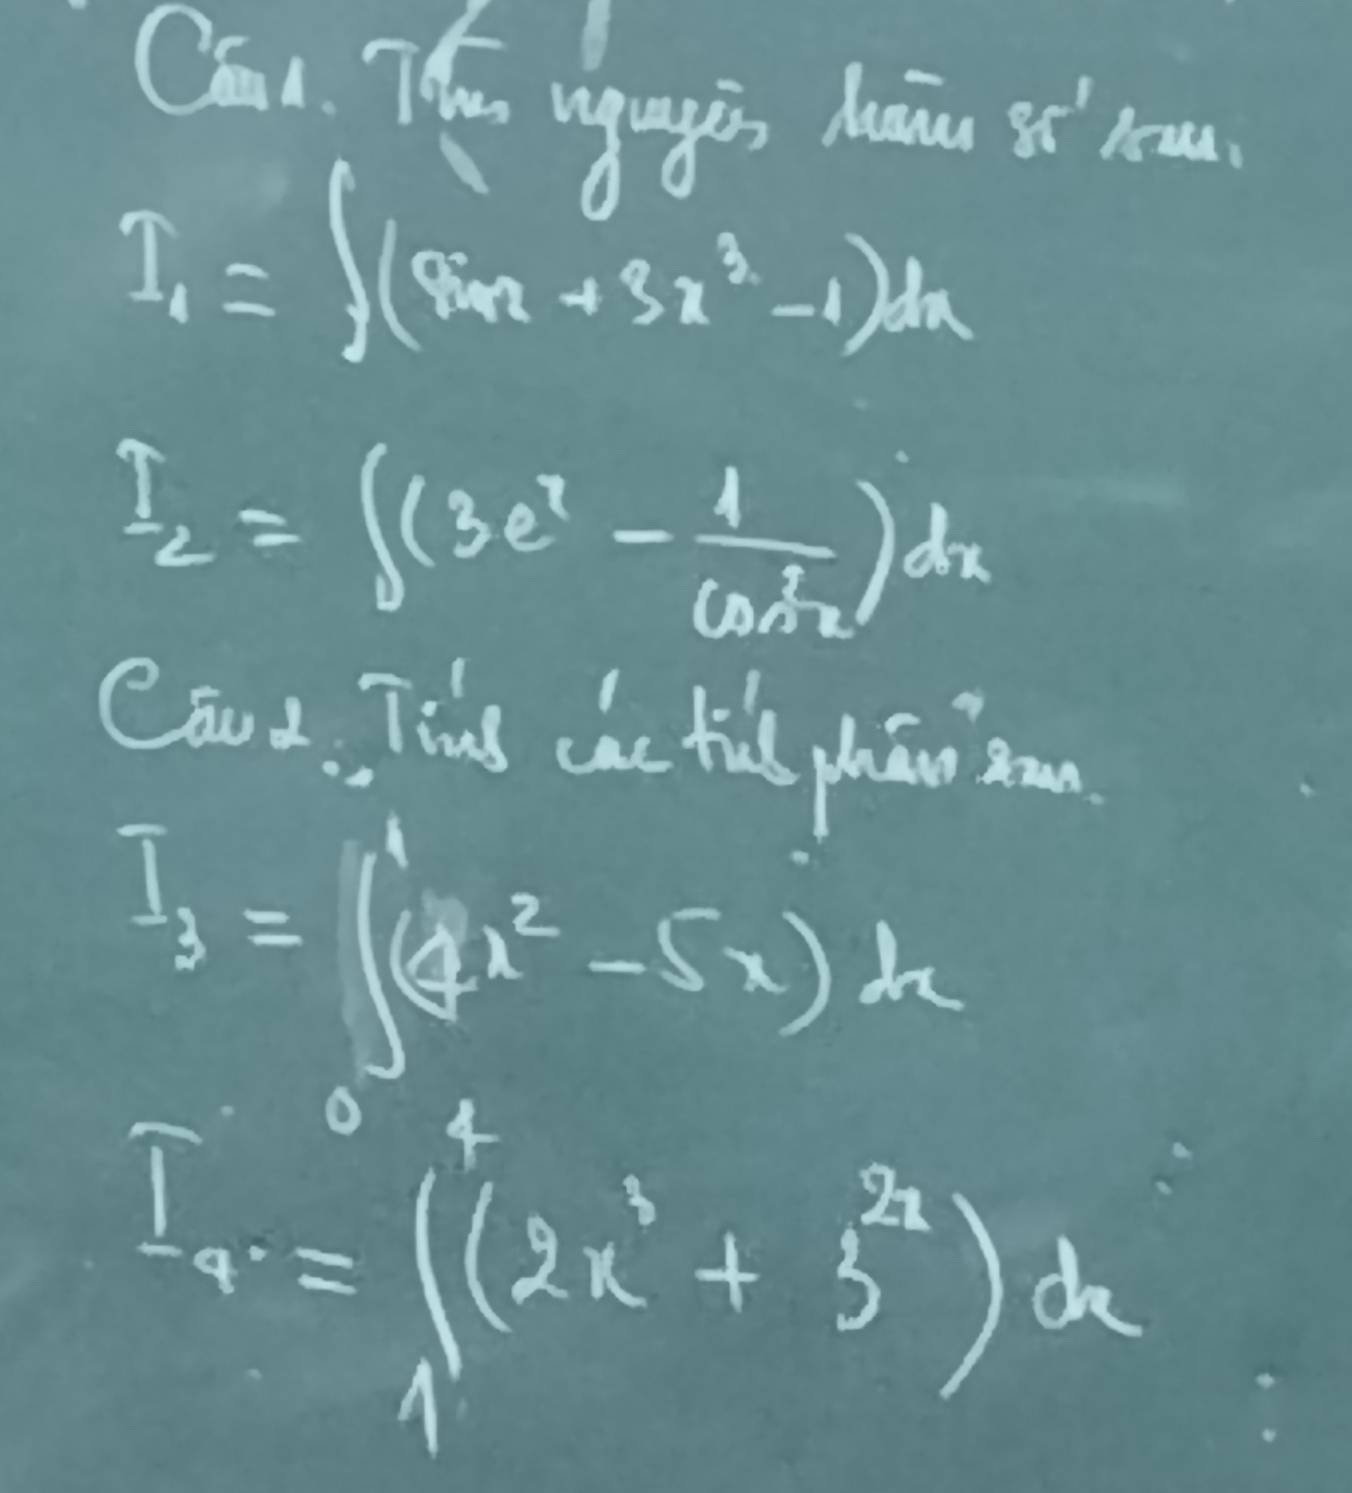 Câu 1. Tìm nguyên hàm số sau.
I₁ = ∫(sinx + 3x³ - 1)dx
I₂ = ∫(3eˣ - 1/cos²x)dx
Câu 2. Tính các tích phân sau.
I₃ = ∫₀¹(4x² - 5x)dx
I₄ = ∫₁⁴(2x³ + 3²ˣ)dx